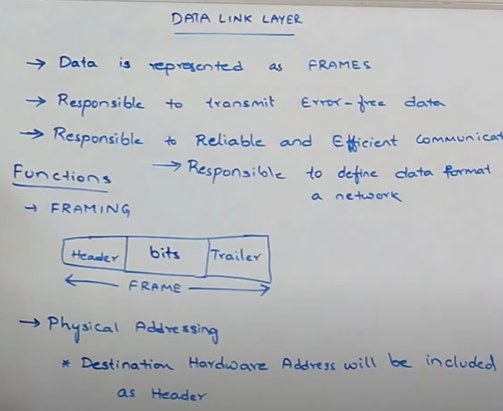 DATA LINK LAYER
→ Data is represented as FRAMES
→ Responsible to transmit Error-free data
→ Responsible to Reliable and Efficient Communicat
→ Responsible to define data format
a network
Functions
→ FRAMING
Header bits Trailer
FRAME
→ Physical Addressing
* Destination Hardware Address will be included
as Header